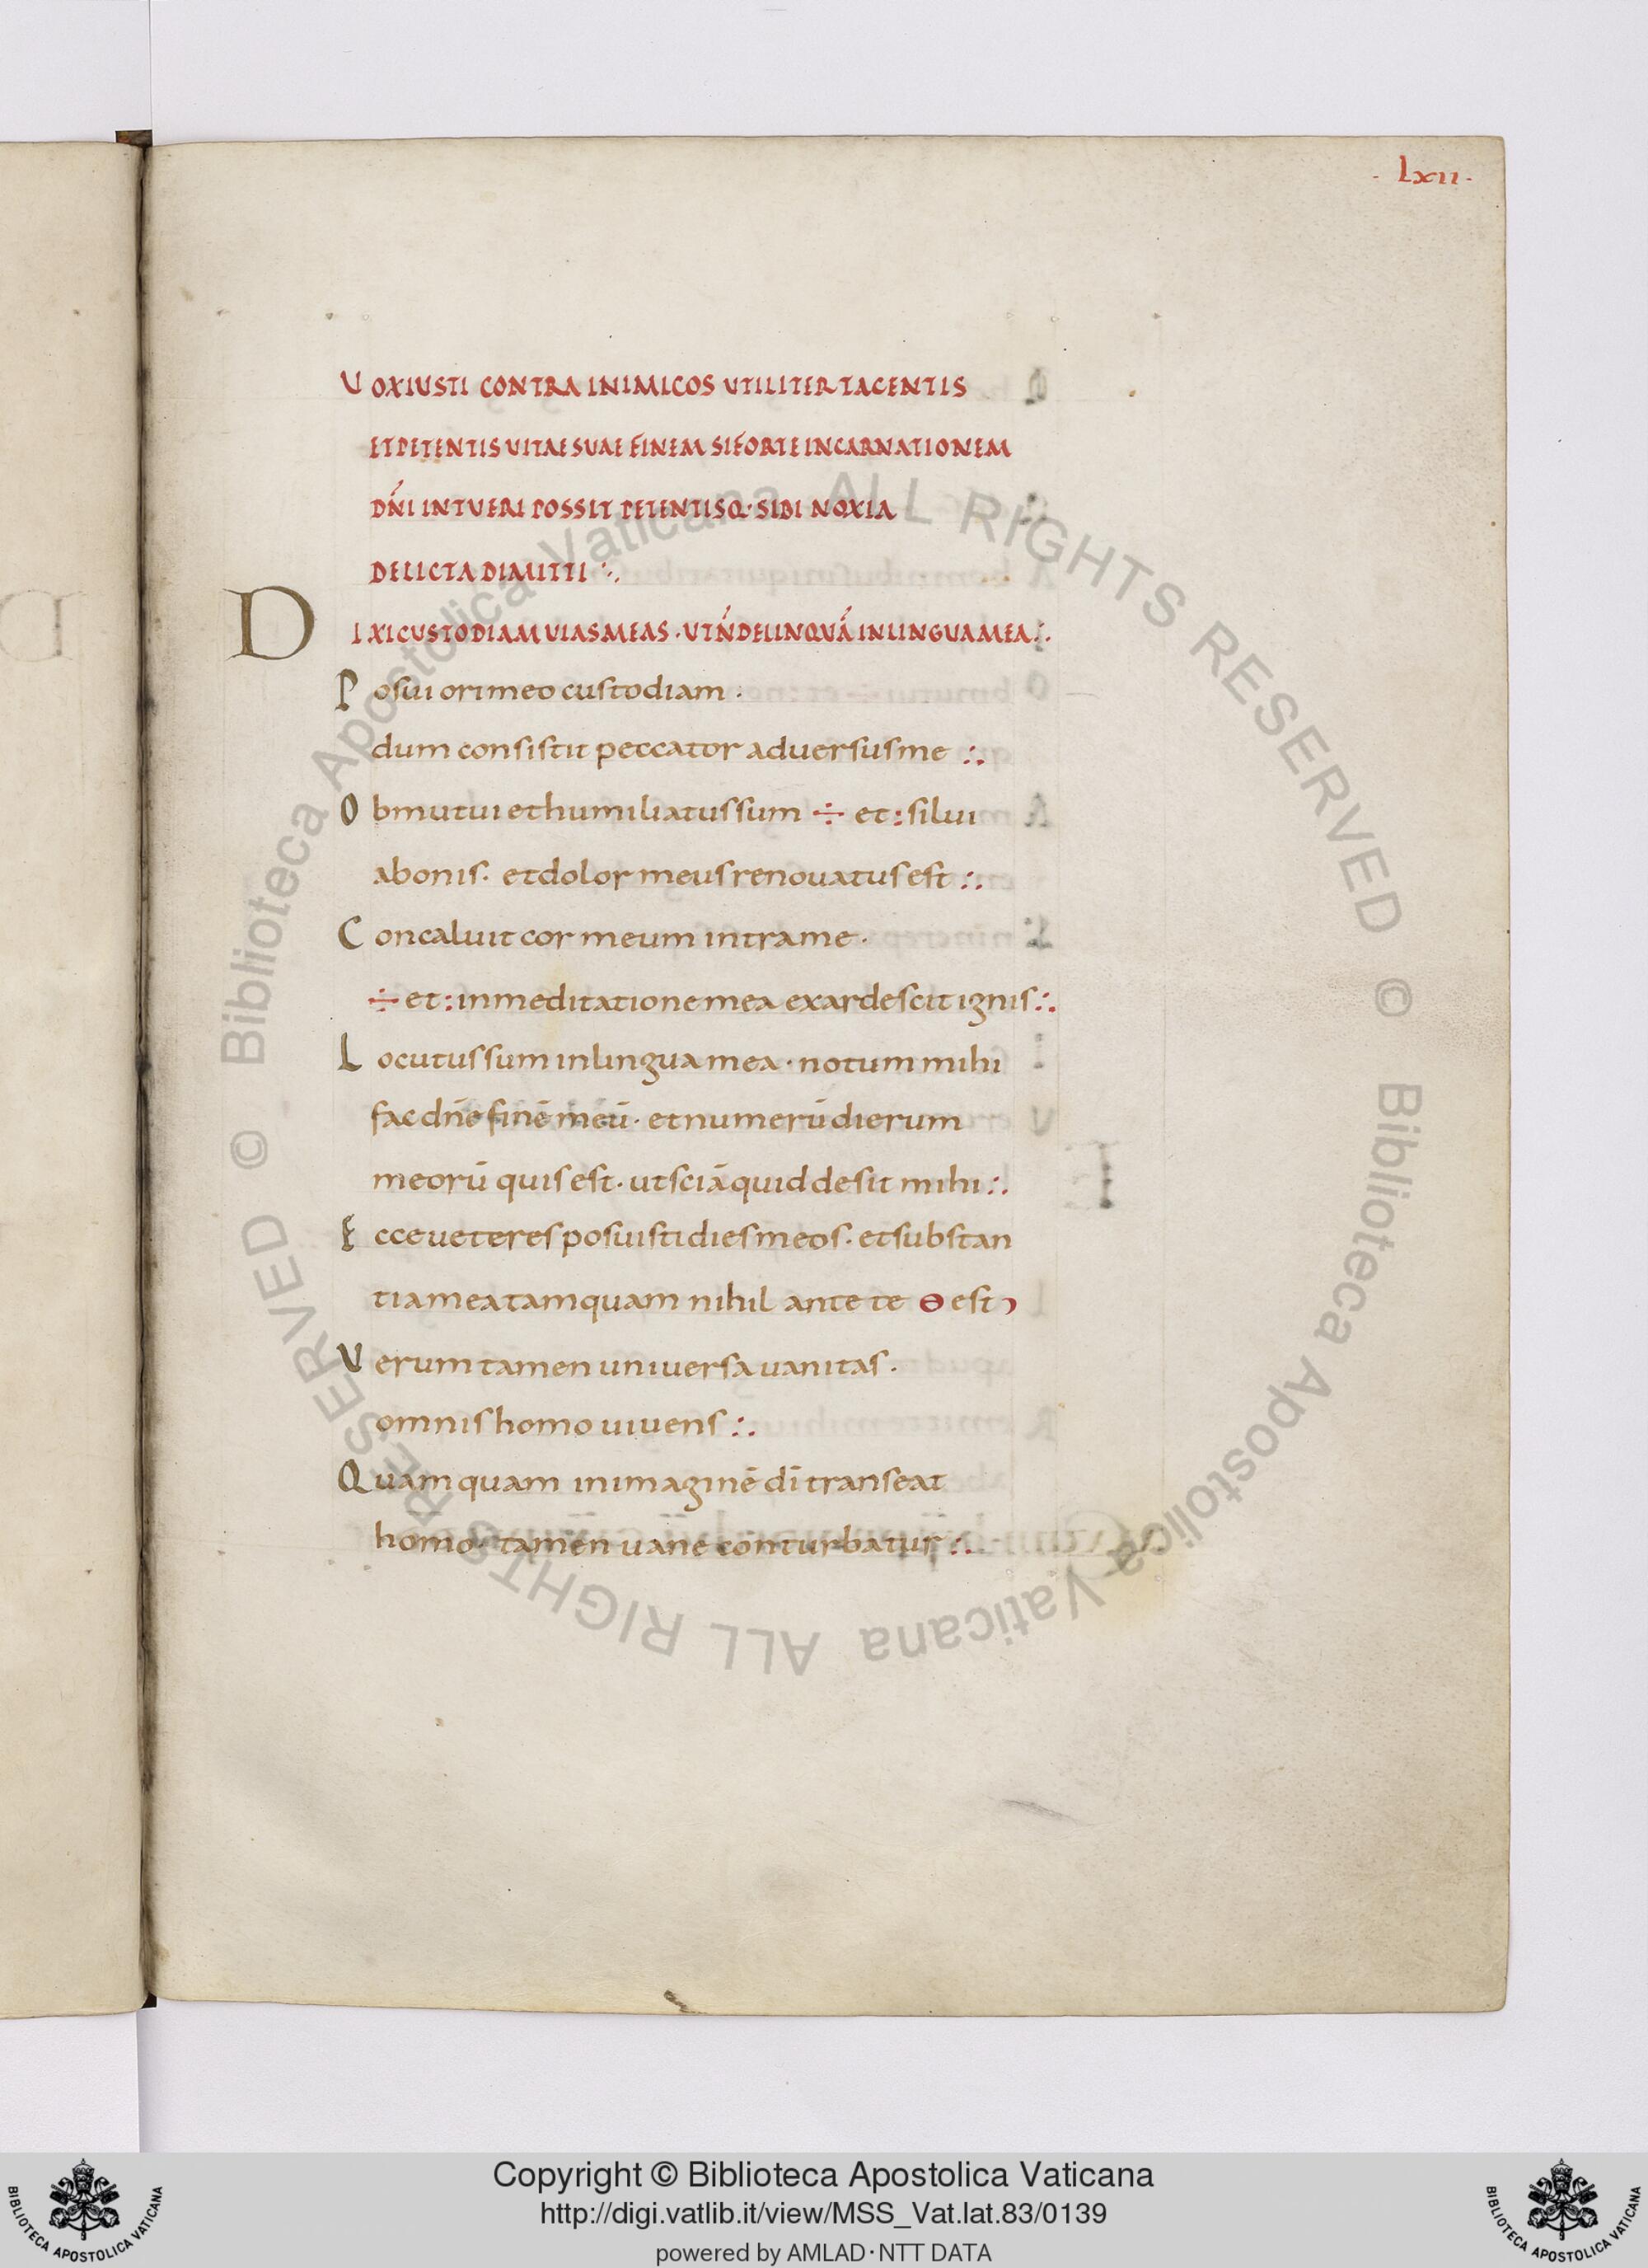 · Lxii ·
VOXIUSTI CONTRA INIMICOS UTILITER TACENTIS
ETPETENTIS UITAE SUAE FINEM SIFORTE INCARNATIONEM
DN̄I INTUERI POSSIT PETENTISQ· SIBI NOXIA
DELICTA DIMITTI ჻
DIXICUSTODIAM UIASMEAS · UTN̄DELINQUĀ INLINGUAMEA ჻
Posui orimeo custodiam ·
dum consistit peccator aduersusme ჻
Obmutui ethumiliatussum ÷ et: silui
abonis · etdolor meusrenouatusest ჻
Concaluit cor meum intrame ·
÷ et: inmeditatione mea exardescit ignis ჻
Locutussum inlingua mea · notum mihi
fac dn̄e finē meū · etnumerū dierum
meorū quisest · utsciā quid desit mihi ჻
Ecce ueteres posuisti dies meos · etsubstan
tia mea tamquam nihil ante te Θ est
Verum tamen uniuersa uanitas ·
omnis homo uiuens ჻
Quam quam inimaginē dī transeat
homo · tamen uane conturbatur ჻
© Biblioteca Apostolica Vaticana ALL RIGHTS RESERVED
© Biblioteca Apostolica Vaticana ALL RIGHTS RESERVED
Copyright © Biblioteca Apostolica Vaticana
http://digi.vatlib.it/view/MSS_Vat.lat.83/0139
powered by AMLAD·NTT DATA
BIBLIOTECA APOSTOLICA VATICANA
BIBLIOTECA APOSTOLICA VATICANA